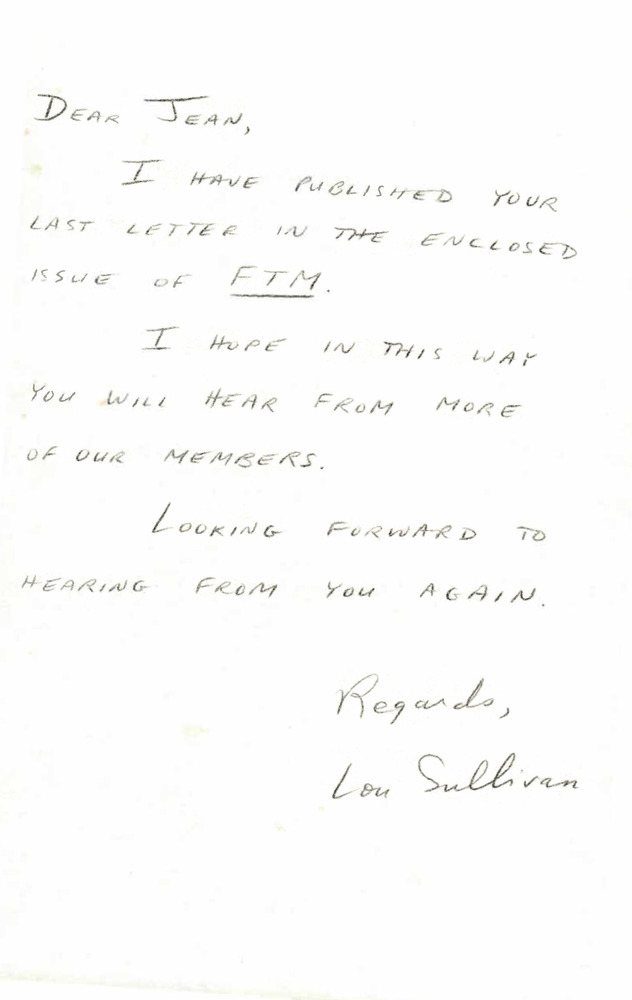 DEAR JEAN,
I HAVE PUBLISHED YOUR
LAST LETTER IN THE ENCLOSED
ISSUE OF FTM.
I HOPE IN THIS WAY
YOU WILL HEAR FROM MORE
OF OUR MEMBERS.
LOOKING FORWARD TO
HEARING FROM YOU AGAIN.
Regards,
Lou Sullivan